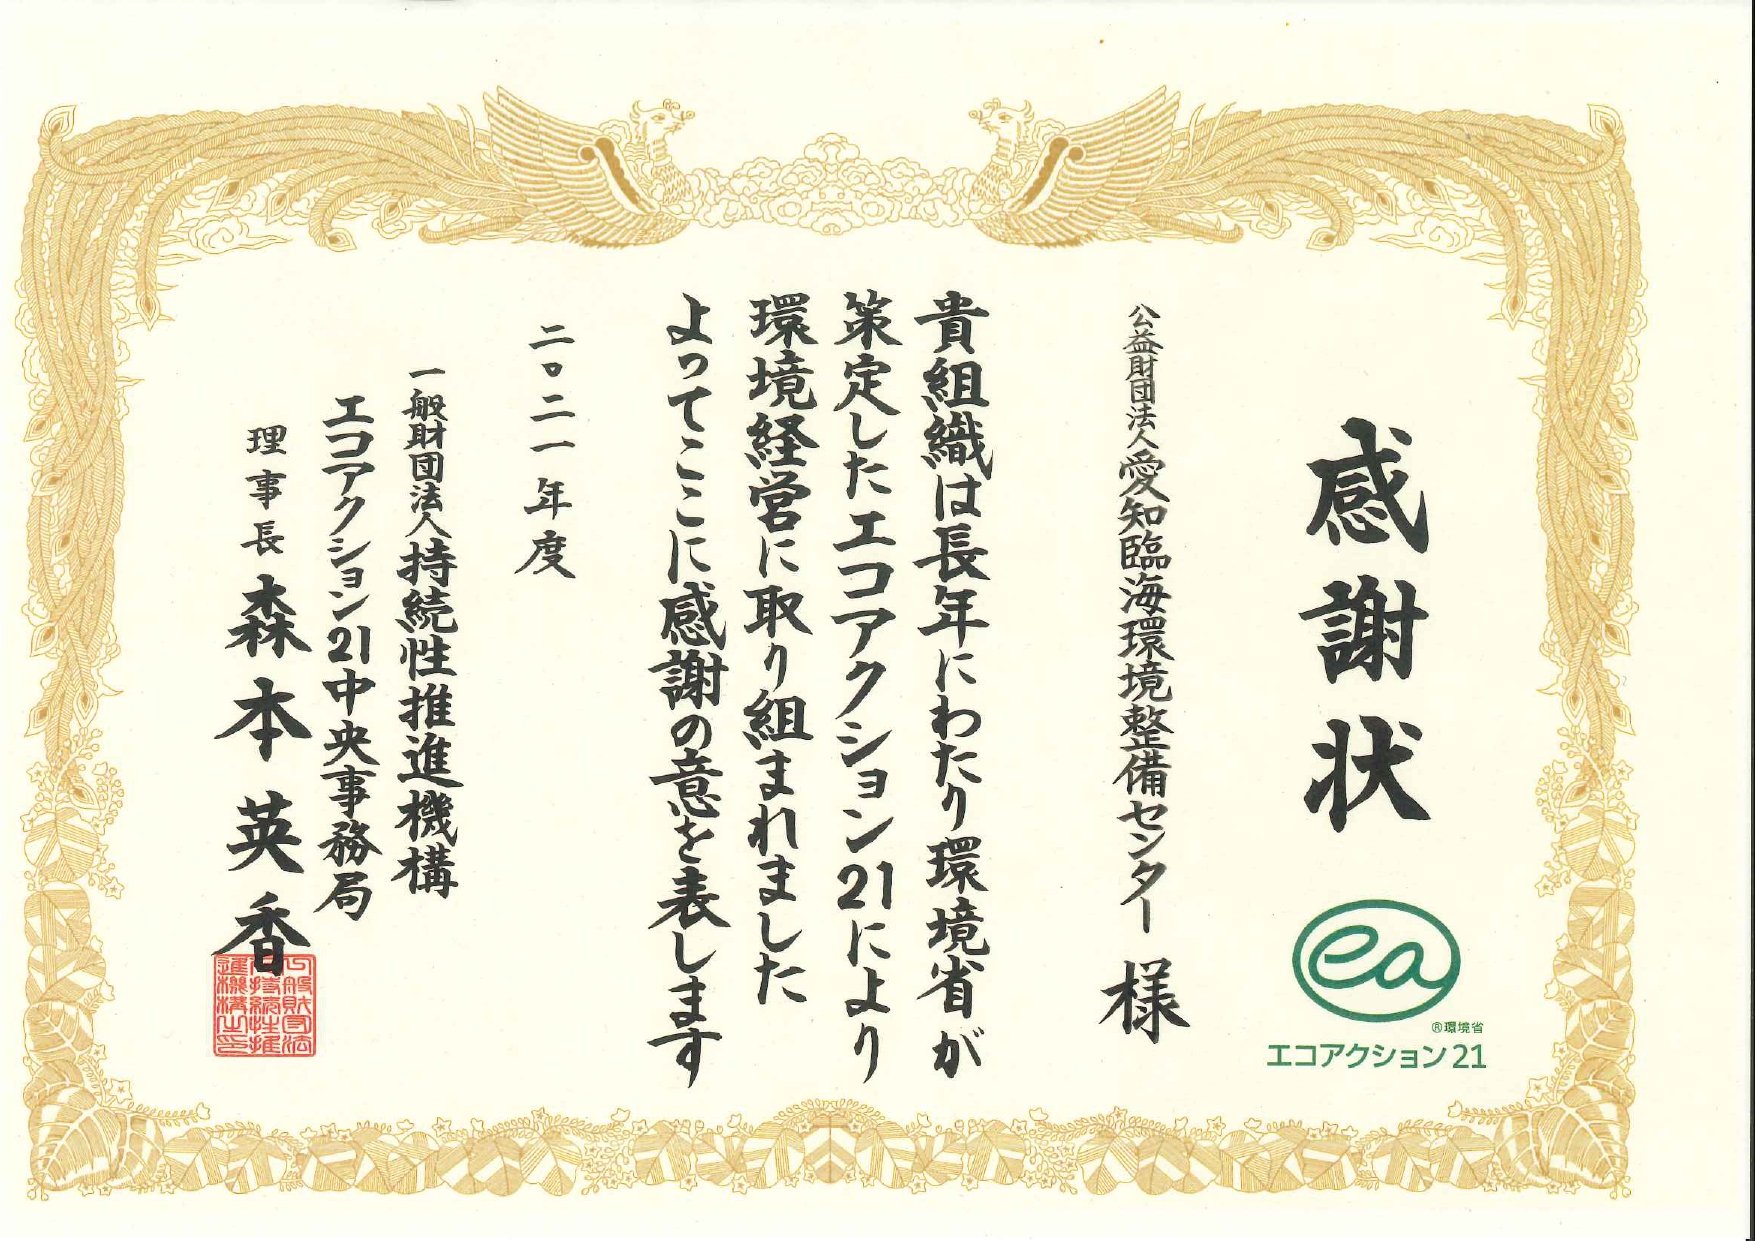 感謝状
公益財団法人愛知臨海環境整備センター 様
貴組織は長年にわたり環境省が
策定したエコアクション21により
環境経営に取り組まれました
よってここに感謝の意を表します
二〇二一年度
一般財団法人持続性推進機構
エコアクション21中央事務局
理事長 森本英香
一般財団法
人持続性推
進機構之印
ea
®環境省
エコアクション21